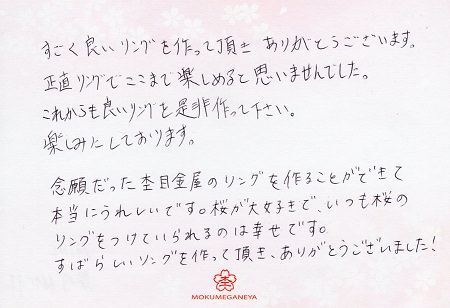 すごく良いリングを作って頂き ありがとうございます。
正直リングでここまで楽しめると思いませんでした。
これからも良いリングを是非作って下さい。
楽しみにしております。
念願だった杢目金屋のリングを作ることができて
本当にうれしいです。桜が大好きで、いつも桜の
リングをつけていられるのは幸せです。
すばらしいリングを作って頂き、ありがとうございました!
MOKUMEGANEYA